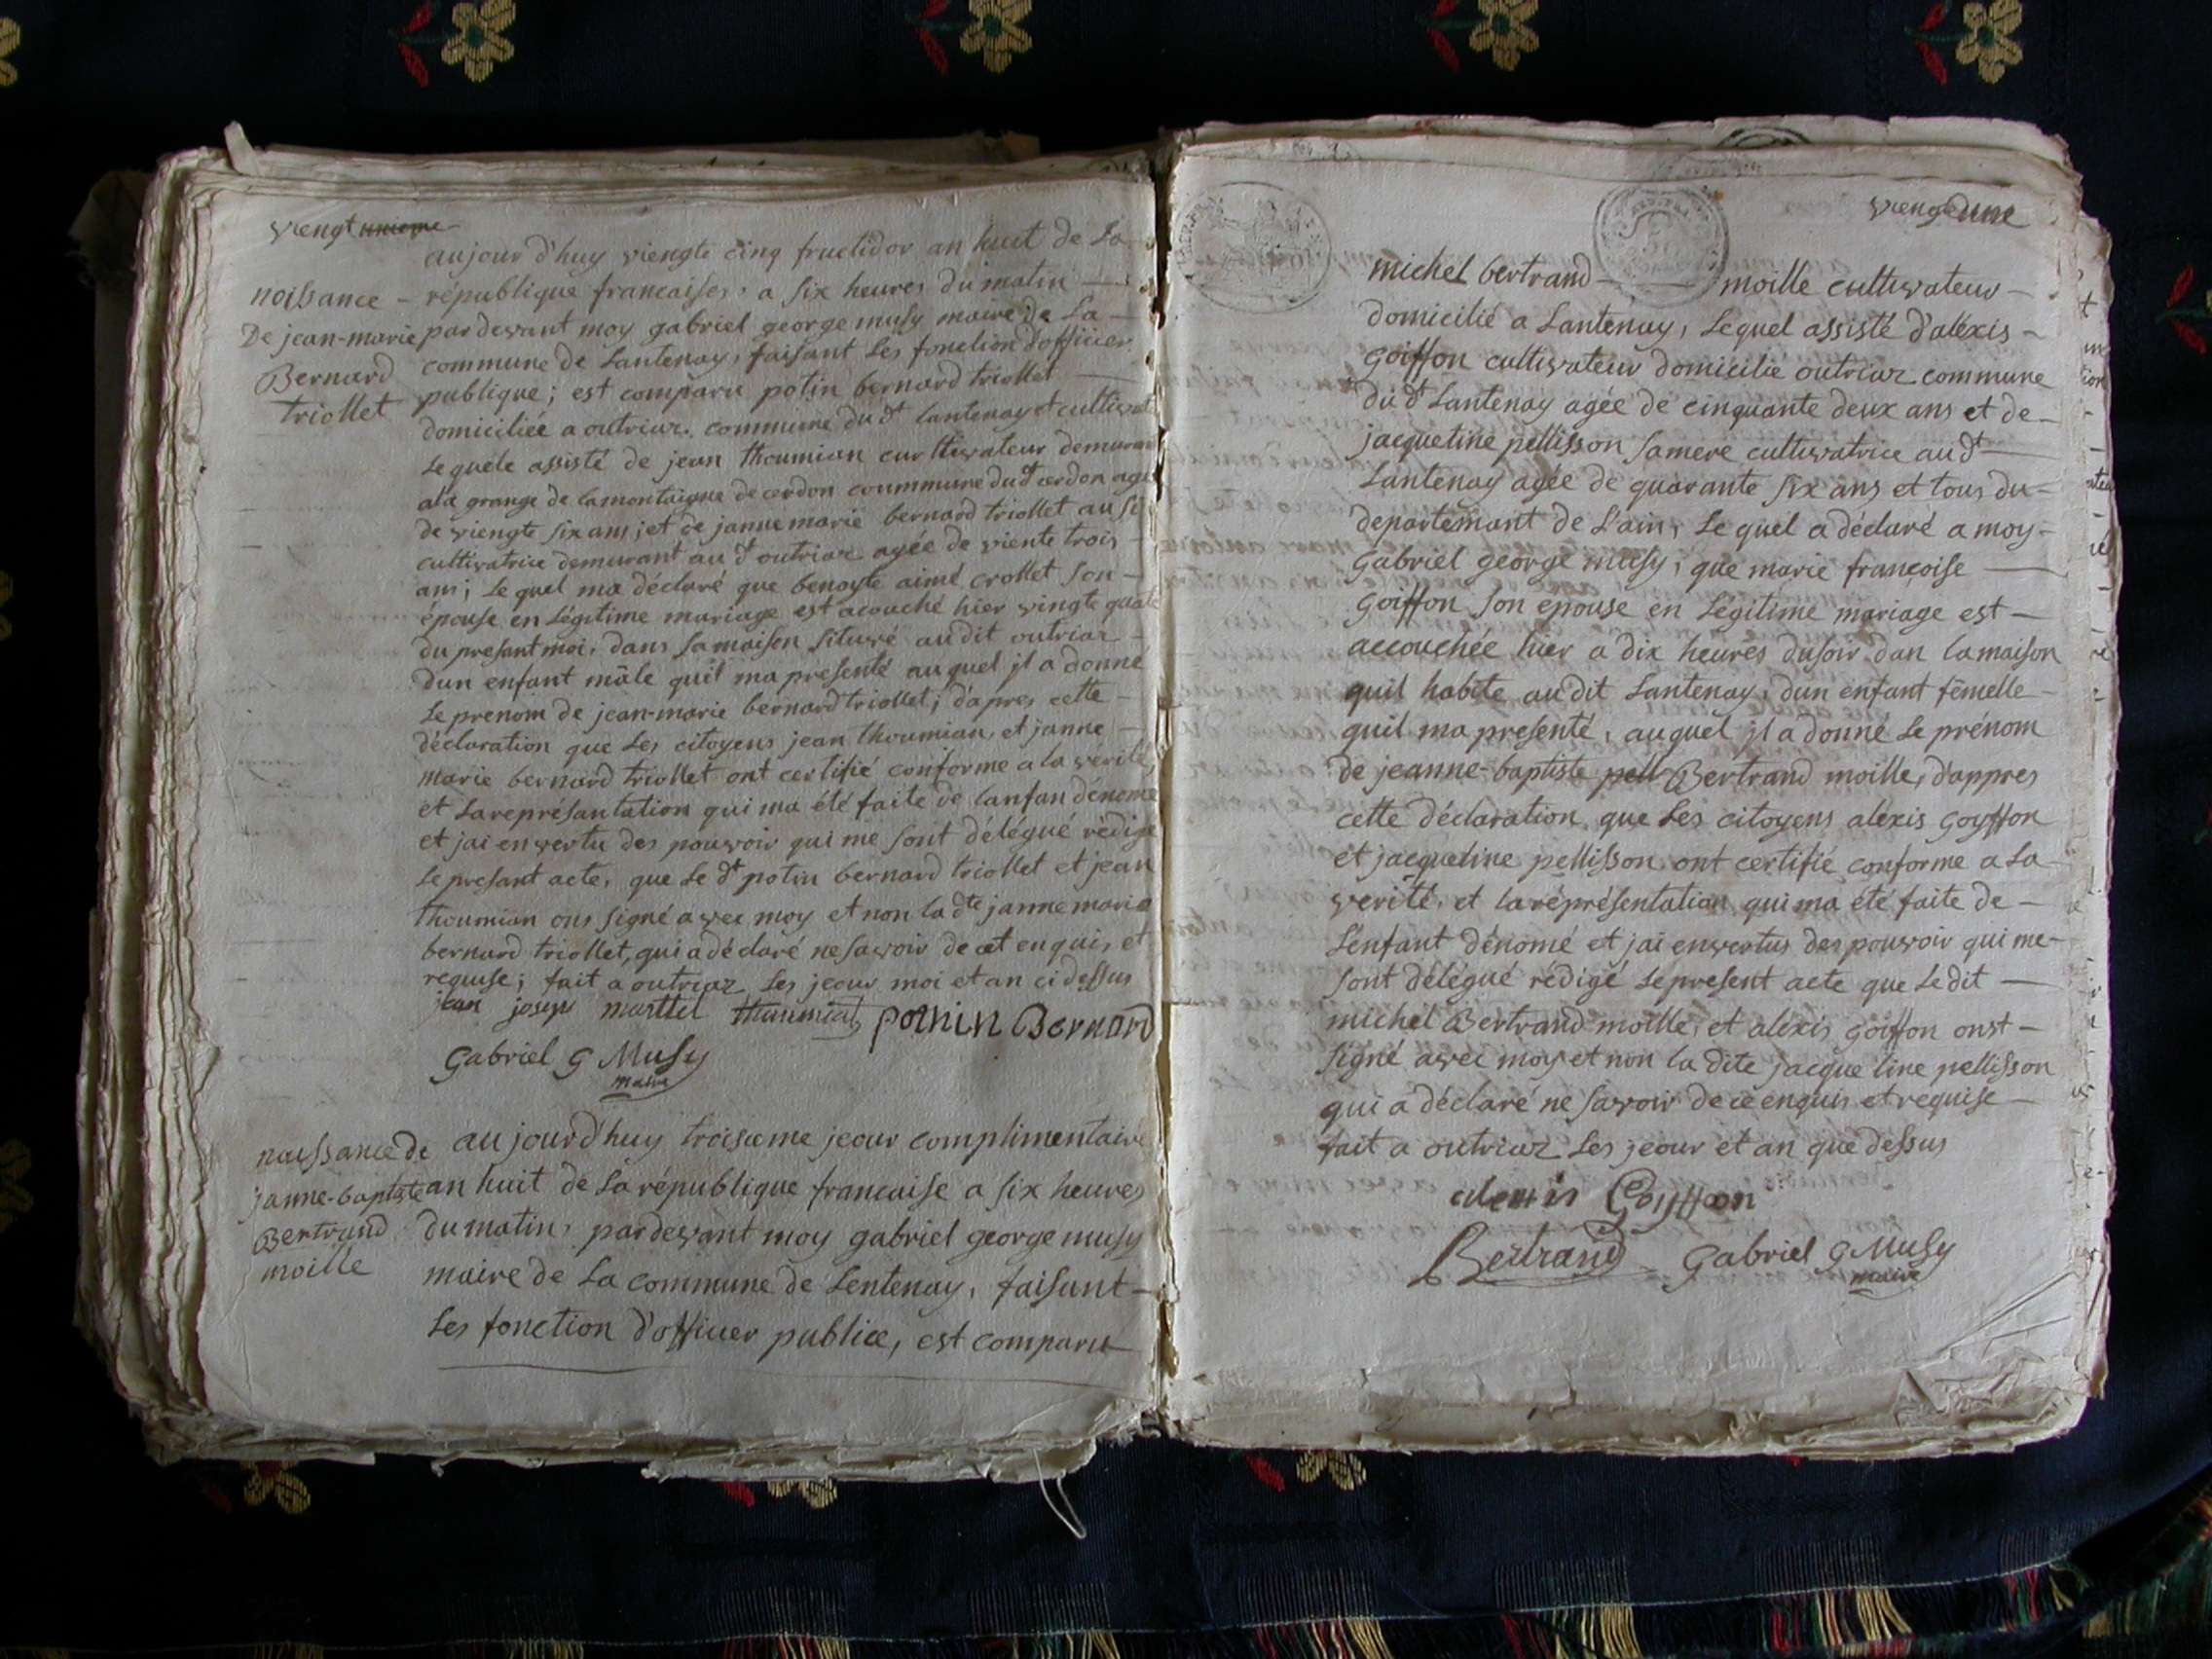 viengt unieme
aujour d'huy viengte cinq fructidor an huit de La
noissance - république francaises, a six heures du matin
De jean-marie par devant moy gabriel george musy maire de La
Bernard commune de Lantenay, faisant Les fonction d'officier
triollet publique; est comparu potin bernard triollet
domiciliée a outriaz. commune du dt lantenay et cultivat
Lequele assisté de jean thoumian curltivateur demuran
ala grange de lamontaigne de cerdon coummune dudt cerdon agé
de viengte six ans; et de janne marie bernard triollet ausi
cultivatrice demurant au dt outriaz agée de viente trois
ans; Le quel ma déclaré que benoyte aimé crollet son
épouse en Légitime mariage est acouché hier vingte quate
du presant moi, dans samaison situvé audit outriaz
dun enfant mâle quil ma presenté auquel jl a donné
Le prenom de jean-marie bernard triollet; d'apres cette
déclaration que Les citoyens jean thoumian, et janne
marie bernard triollet ont certifié conforme a la vérité,
et Lareprésantation qui ma été faite de lanfan dénomé
et jai en vertu des pouvoir qui me sont délégué rédigé
Le presant acte, que Le dt potin bernard triollet et jean
thoumian ons signé avec moy et non la dte janne marie
bernard triollet, qui a déclaré ne savoir de cet enquis et
requise; fait a outriaz Les jeour moi et an ci dessus
jean josep marttel thoumiat potnin Bernard
Gabriel G Musy
maire
naissance de aujourd'huy troisieme jeour complimentaire
janne-baptiste an huit de La république francaise a six heures
Bertrand du matin, pardevant moy gabriel george musy
moille maire de La commune de Lentenay, faisant
Les fonction d'officer publice, est comparu
viengte une
michel bertrand moille cultivateur
domicilié a Lantenay, Lequel assisté d'aléxis
goiffon cultivateur domicilié outriaz commune
du dt Lantenay agée de cinquante deux ans et de
jacqueline pellisson samere cultivatrice audt
Lantenay agée de quarante six ans et tous du
departemant de L'ain, Le quel a déclaré a moy
Gabriel george musy, que marie francoise
goiffon son epouse en Légitime mariage est
accouchée hier a dix heures dusoir dan lamaison
quil habite au dit Lantenay, dun enfant fêmelle
quil ma presenté, auquel jl a donné Le prénom
de jeanne-baptiste pell Bertrand moille, d'appres
cette déclaration que Les citoyens aléxis goyffon
et jacqueline pellisson ont certifié conforme a La
verité, et laréprésentation qui ma été faite de
L'enfant dénomé et jai envertus des pouvoir qui me
sont délégué rédigé Lepresent acte que Ledit
michel Bertrand moille, et aléxis goiffon onst
signé avec moy et non la dite jacqueline pellisson
qui a déclaré ne savoir de ce enquis et requise
fait a outriaz Les jeour et an que dessus
alexis Goyffon
Bertrand Gabriel G Musy
maire